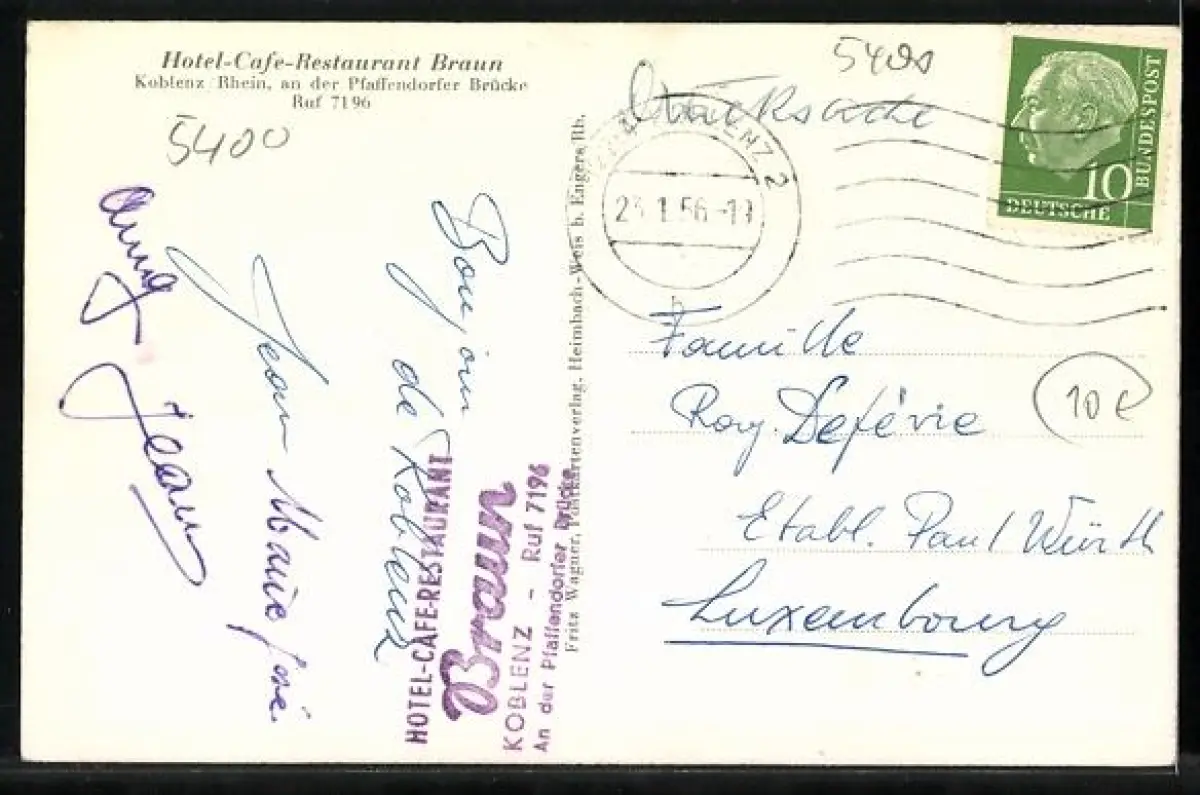 Hotel-Cafe-Restaurant Braun
Koblenz/Rhein, an der Pfaffendorfer Brücke
Ruf 7196
5400
Bonjour
de Koblenz
Jean Marie José
Anny
Jean
HOTEL-CAFE-RESTAURANT
Braun
KOBLENZ - Ruf 7196
An der Pfaffendorfer Brücke
Fritz Wagner, Postkartenverlag, Heimbach-Weis b. Engers/Rh.
Drucksache
KOBLENZ 2
23.1.56.-19
h
DEUTSCHE
BUNDESPOST
10
Famille
Roy. Defévie
Etabl. Paul Würth
Luxembourg
10 €